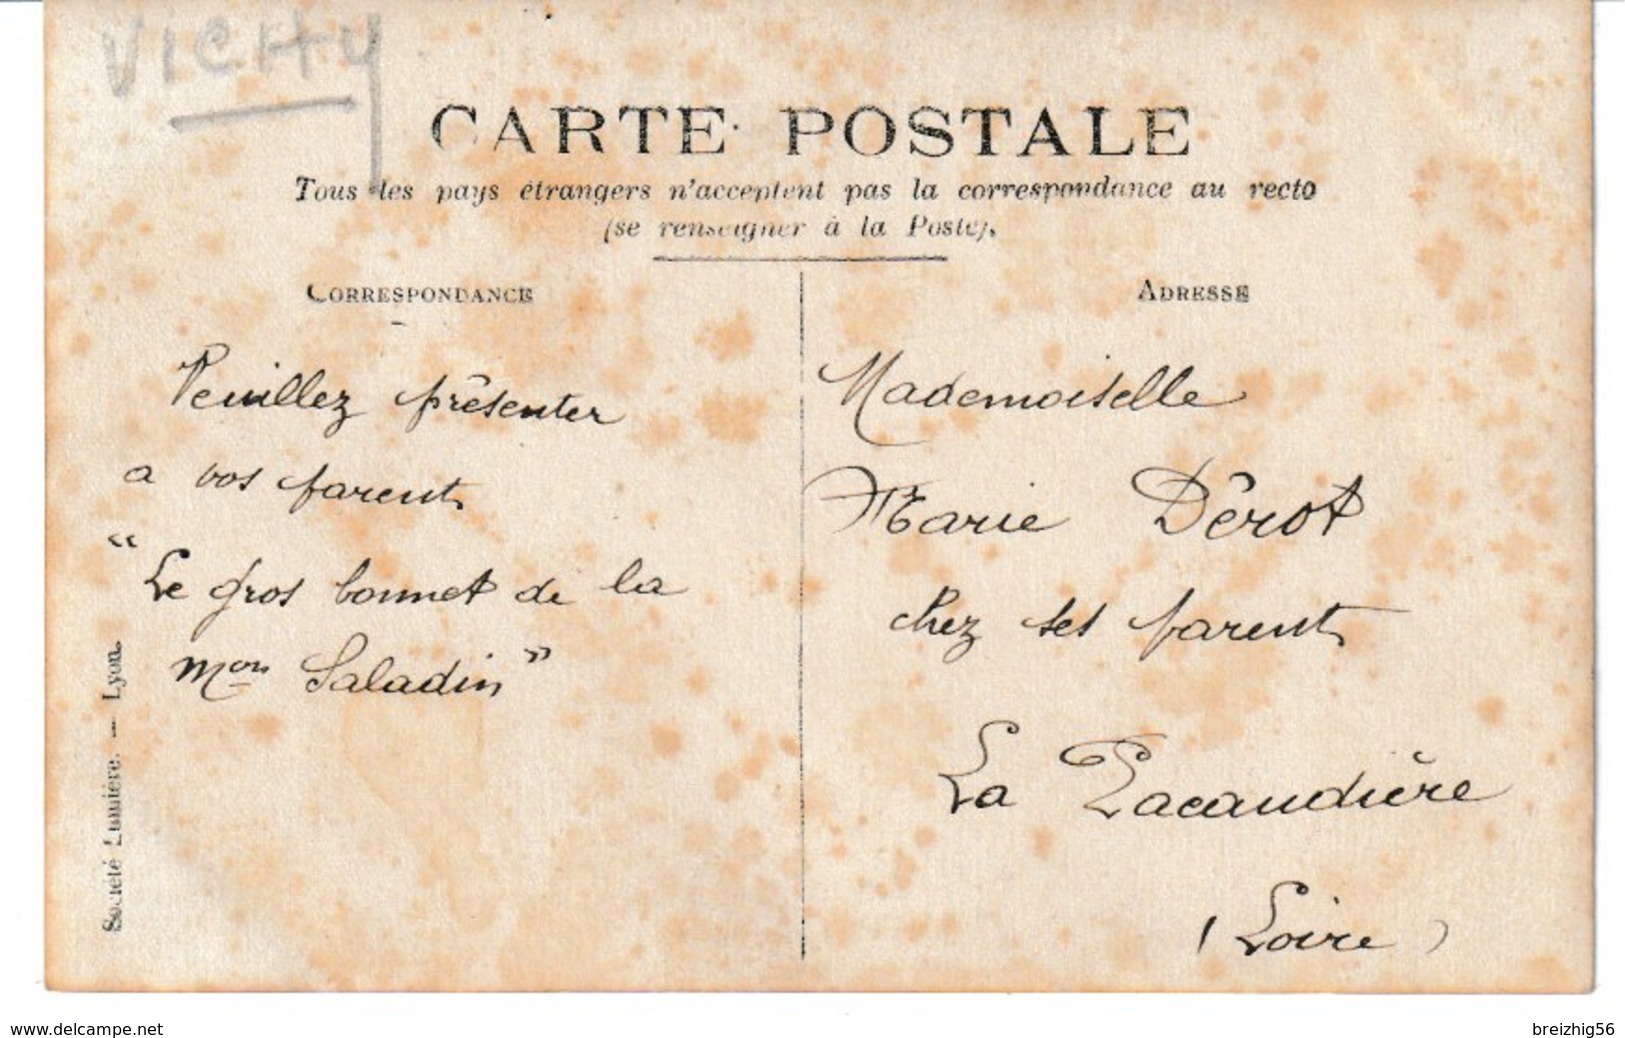 VICHY
CARTE POSTALE
Tous les pays étrangers n'acceptent pas la correspondance au recto
(se renseigner à la Poste).
CORRESPONDANCE
Veuillez présenter
a vos parents
“Le gros bonnet de la
mon Saladin”
Société Lumière. — Lyon.
ADRESSE
Mademoiselle
Marie Dérot
chez ses parents
La Pacaudière
(Loire)
www.delcampe.net
breizhig56